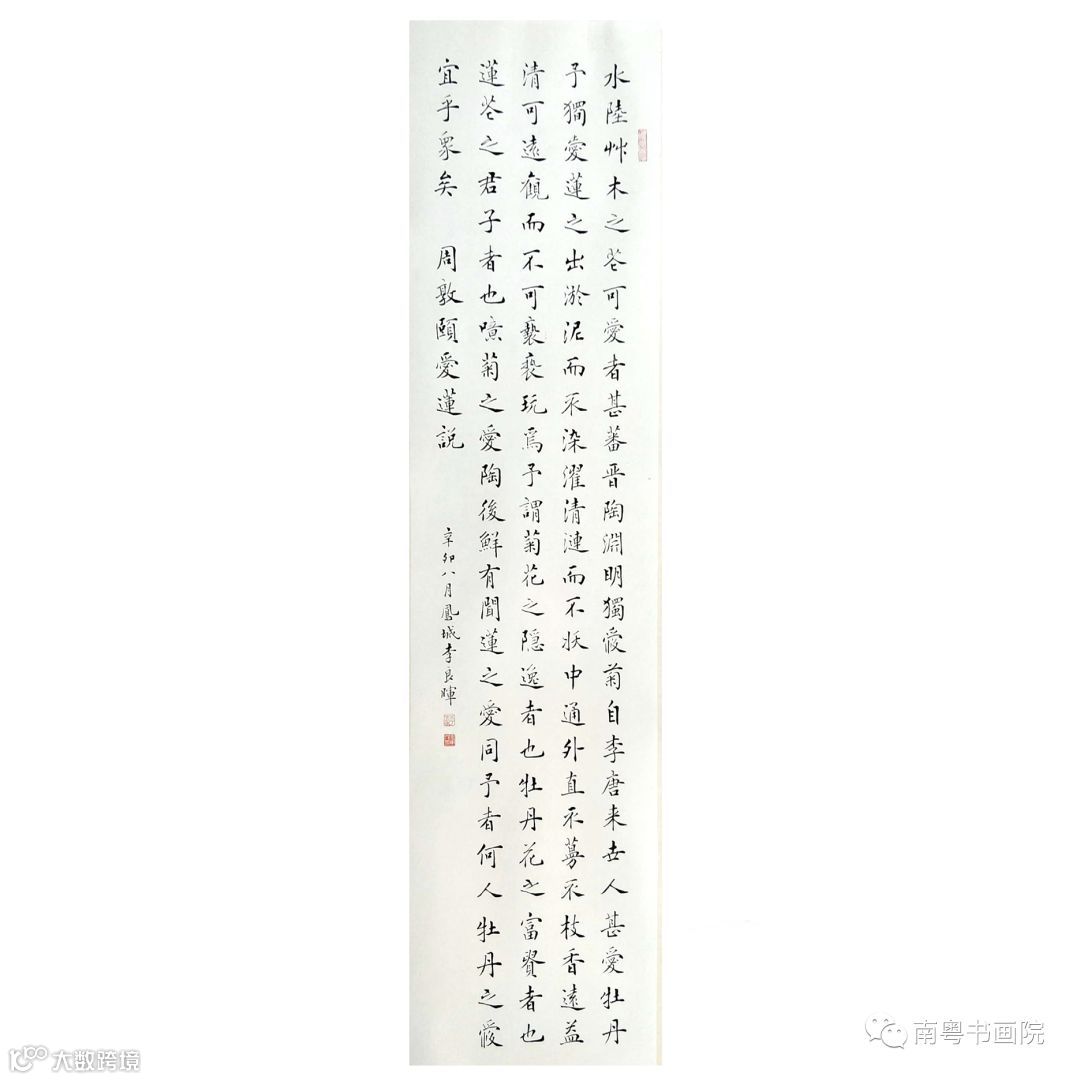 水陸艸木之芲可愛者甚蕃晋陶淵明獨愛菊自李唐来世人甚愛牡丹
予獨愛蓮之出淤泥而不染濯清漣而不妖中通外直不蔓不枝香遠益
清可遠觀而不可褻褻玩焉予謂菊花之隠逸者也牡丹花之富貴者也
蓮芲之君子者也噫菊之愛陶後鮮有聞蓮之愛同予者何人牡丹之愛
宜乎衆矣 周敦頤愛蓮説
辛卯八月鳳城李良暉
南粤书画院
大数跨境